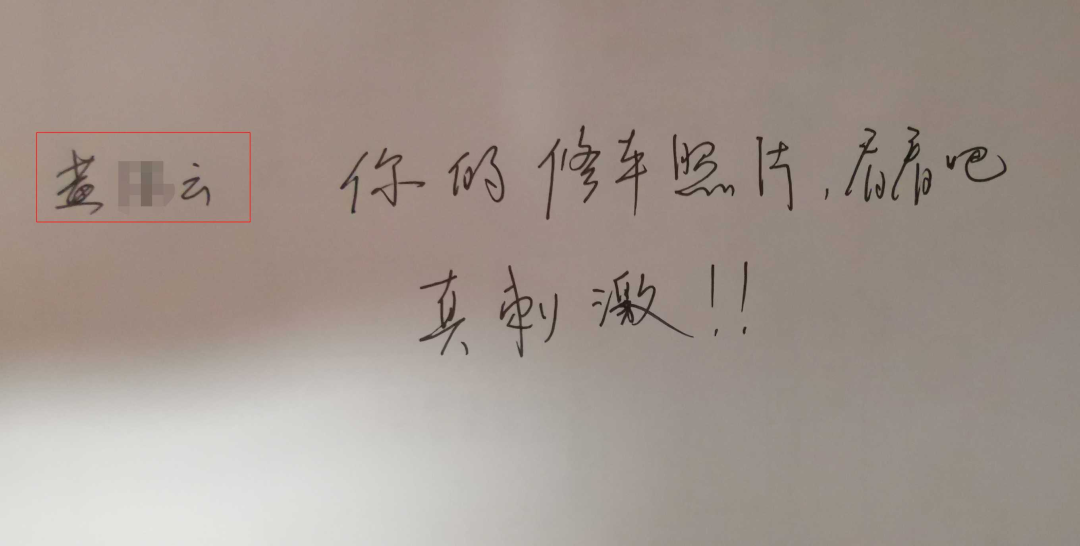 云 你的修车照片,看看吧
真刺激!!